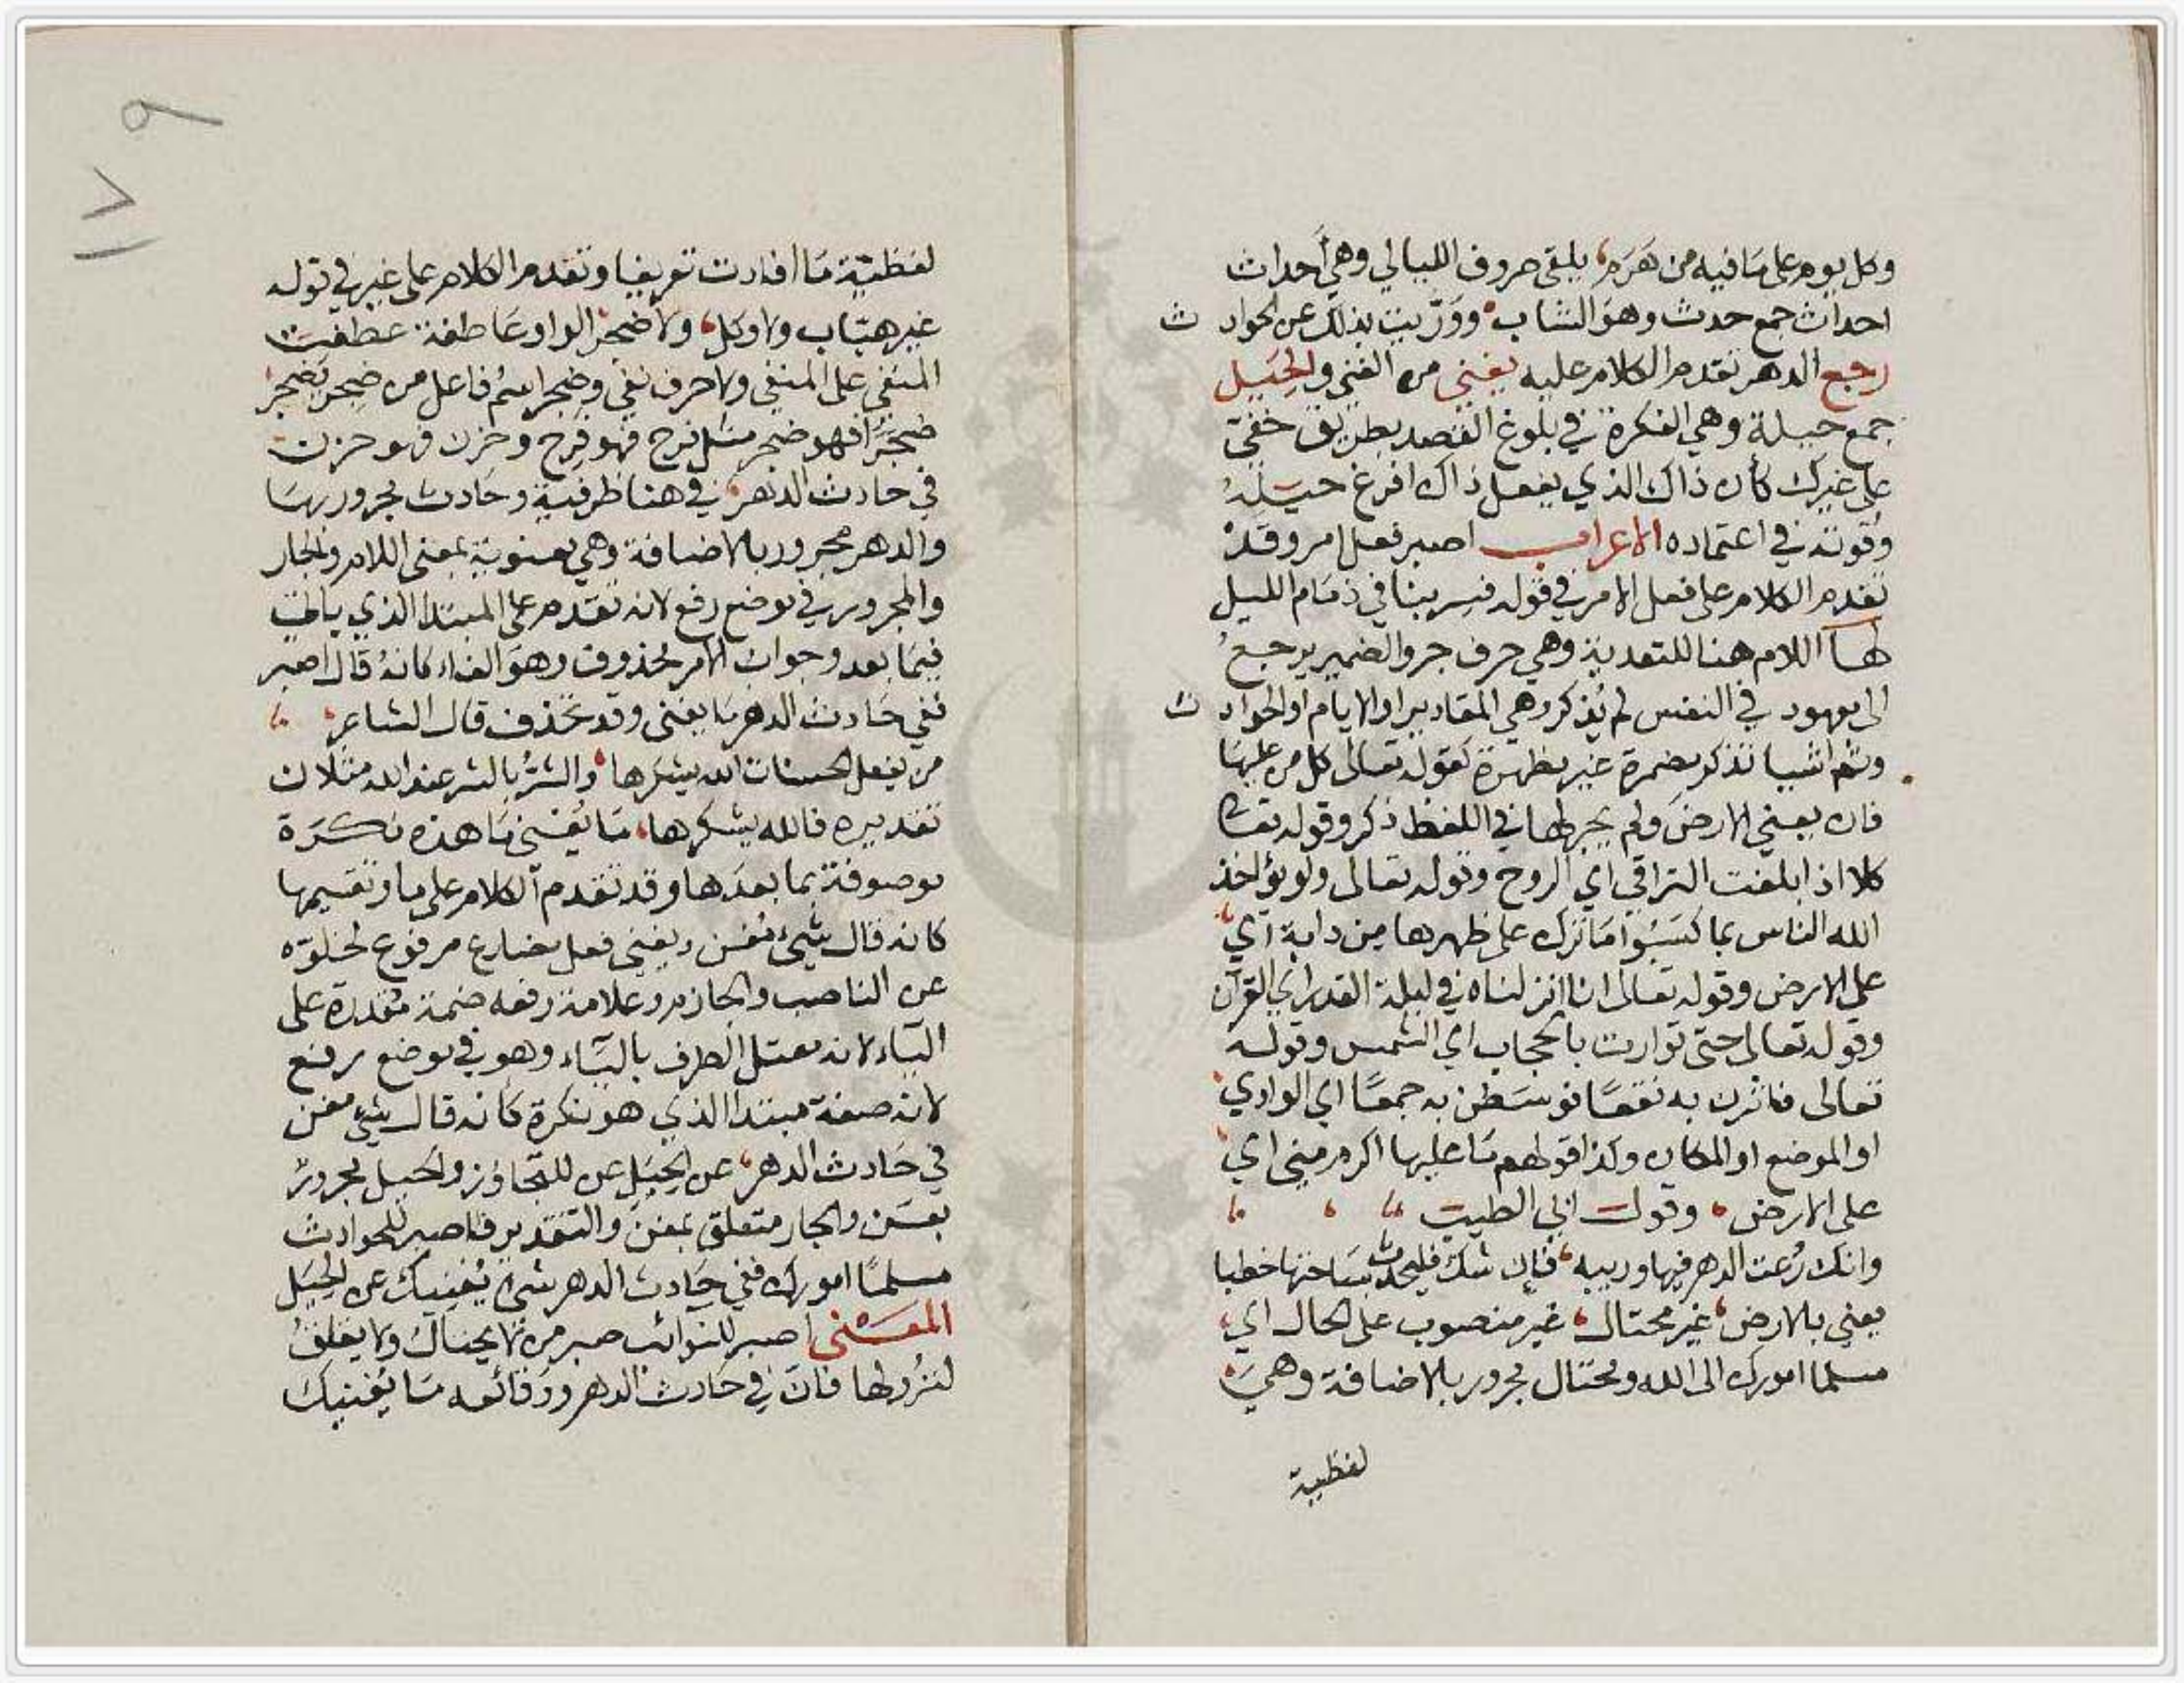 وكل يوم على ما فيه من هرم، يلقى صروف الليالي وهي أحداث
احداث جمع حدث وهو الشاب ووريت بذلك عن الحوادث
رجع الدهر تقدم الكلام عليه يغني من الغنى والحيل
جمع حيلة وهي الفكرة في بلوغ القصد بطريق خفي
على غيرك كأن ذاك الذي يفعل ذاك افرغ حيله
وقوته في اعتماده الاعراب اصبر فعل امر وقد
تقدم الكلام على فعل الامر في قوله فسر بنا في ذمام الليل
لها اللام هنا للتعدية وهي حرف جر والضمير يرجع
الى معهود في النفس لم يذكر وهي المقادير او الايام او الحوادث
وثم اشيا تذكر مضمرة غير مظهرة كقوله تعالى كل من عليها
فان يعني الارض ولم يجر لها في اللفظ ذكر وقوله تعا
كلا اذا بلغت التراقي اي الروح وقوله تعالى ولو يؤاخذ
الله الناس بما كسبوا ما ترك على ظهرها من دابة اي
على الارض وقوله تعالى انا انزلناه في ليلة القدر اي القرآن
وقوله تعالى حتى توارت بالحجاب اي الشمس وقوله
تعالى فاثرن به نقعا فوسطن به جمعا اي الوادي
او الموضع او المكان وكذا قولهم ما عليها اكرم مني اي
على الارض، وقول ابي الطيب
وانك رعت الدهر فيها وريبه، فان شك فليحدث بساحتها خطبا
يعني بالارض، غير محتال، غير منصوب على الحال اي
مسلما امورك الى الله ومحتال مجرور بالاضافة وهي
لفظية
٩
١٧
لفظية ما افادت تعريفا وتقدم الكلام على غير في قوله
غير هياب ولا وكل، ولا ضجر الواو عاطفة عطفت
المنفي على المنفي ولا حرف نفي وضجر اسم فاعل من ضجر يضجر
ضجرا فهو ضجر مثل فرح فهو فرح وحزن فهو حزن
في حادث الدهر، في هنا ظرفية وحادث مجرور بها
والدهر مجرور بالاضافة وهي معنوية بمعنى اللام والجار
والمجرور في موضع رفع لانه تقدم على المبتدا الذي ياتي
فيما بعد وجواب الامر محذوف وهو الفاء كانه قال اصبر
ففي حادث الدهر ما يغنى وقد تحذف قال الشاعر
من يفعل الحسنات الله يشكرها، والشر بالشر عند الله مثلان
تقديره فالله يشكرها، ما يغني ما هذه نكرة
موصوفة بما بعدها وقد تقدم الكلام على ما وتقسيمها
كانه قال شيء مغن ويغني فعل مضارع مرفوع لخلوه
عن الناصب والجازم وعلامة رفعه ضمة مقدرة على
الياء لانه معتل الطرف بالياء وهو في موضع رفع
لانه صفة مبتدا الذي هو نكرة كانه قال شيء مغن
في حادث الدهر، عن الحيل عن للتجاوز والحيل مجرور
بعن والجار متعلق بمغن والتقدير فاصبر للحوادث
مسلما امورك ففي حادث الدهر شيء يغنيك عن الحيل
المعنى اصبر للنوائب صبر من لا يحتال ولا يقلق
لنزولها فان في حادث الدهر ووقائعه ما يغنيك